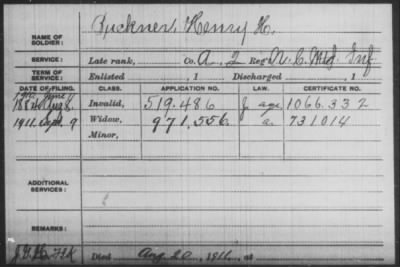 NAME OF SOLDIER: Buckner, Henry H.
SERVICE: Late rank, Co. A, 2 Reg't N.C. Mtd. Inf.
TERM OF SERVICE: Enlisted , 1 Discharged , 1
DATE OF FILING. CLASS. APPLICATION NO. LAW. CERTIFICATE NO.
June
188 Aug 8. Invalid, 519.486 age 1066.332
1911. Sept. 9 Widow, 971,556. a. 731014
Minor,
ADDITIONAL SERVICES:
REMARKS:
Died Aug 20, 1911, at